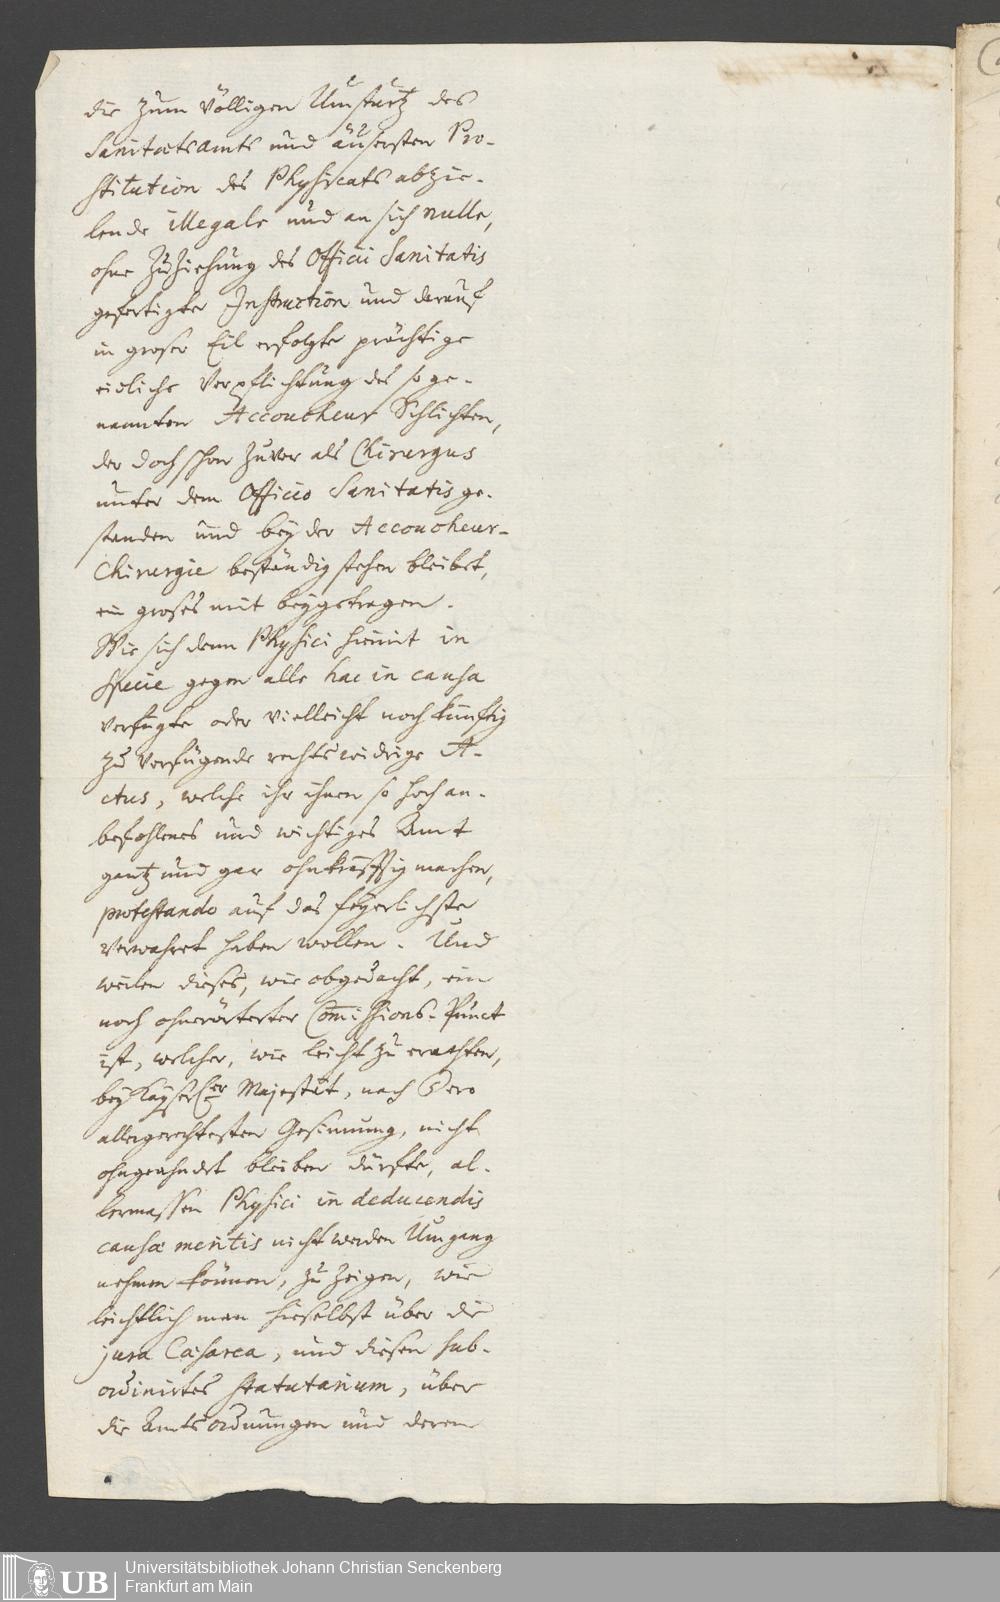 die zum völligen Umsturtz des
Sanitætsamts und äusersten Pro-
stitution des Physicats abzie-
lende illegale und an sich nulle,
ohne Zuziehung des Officii Sanitatis
gefertigte Instruction und darauf
in groser Eil erfolgte prächtige
eidliche Verpflichtung des soge-
nannten Accoucheur Schlichten,
der doch schon zuvor als Chirurgus
unter dem Officio Sanitatis ge-
standen und bey der Accoucheur-
Chirurgie beständig stehen bleibet,
ein groses mit beygetragen.
Wie sich dann Physici hiemit in
specie gegen alle hac in causa
verfügte oder vielleicht noch künftig
zu verfügende rechtswidrige A-
ctus, welche ihr ihnen so hoch an-
befohlenes und wichtiges Amt
gantz und gar ohnkräfftig machen,
protestando auf das feyerlichste
verwahret haben wollen. Und
weilen dieses, wie obgedacht, ein
noch ohnerörterter Com̄issions-Punct
ist, welcher, wie leicht zu erachten,
bey Kayserl.er Majestät, nach Dero
allergerechtesten Gesinnung, nicht
ohngeahndet bleiben dürfte, al-
lermassen Physici in deducendis
causæ meritis nicht werden Umgang
nehmen können, zu zeigen, wie
leichtlich man hieselbst über die
jura Cæsarea, und diesen sub-
ordinirtes statutarium, über
die Amtsordnungen und deren
Universitätsbibliothek Johann Christian Senckenberg
Frankfurt am Main
UB